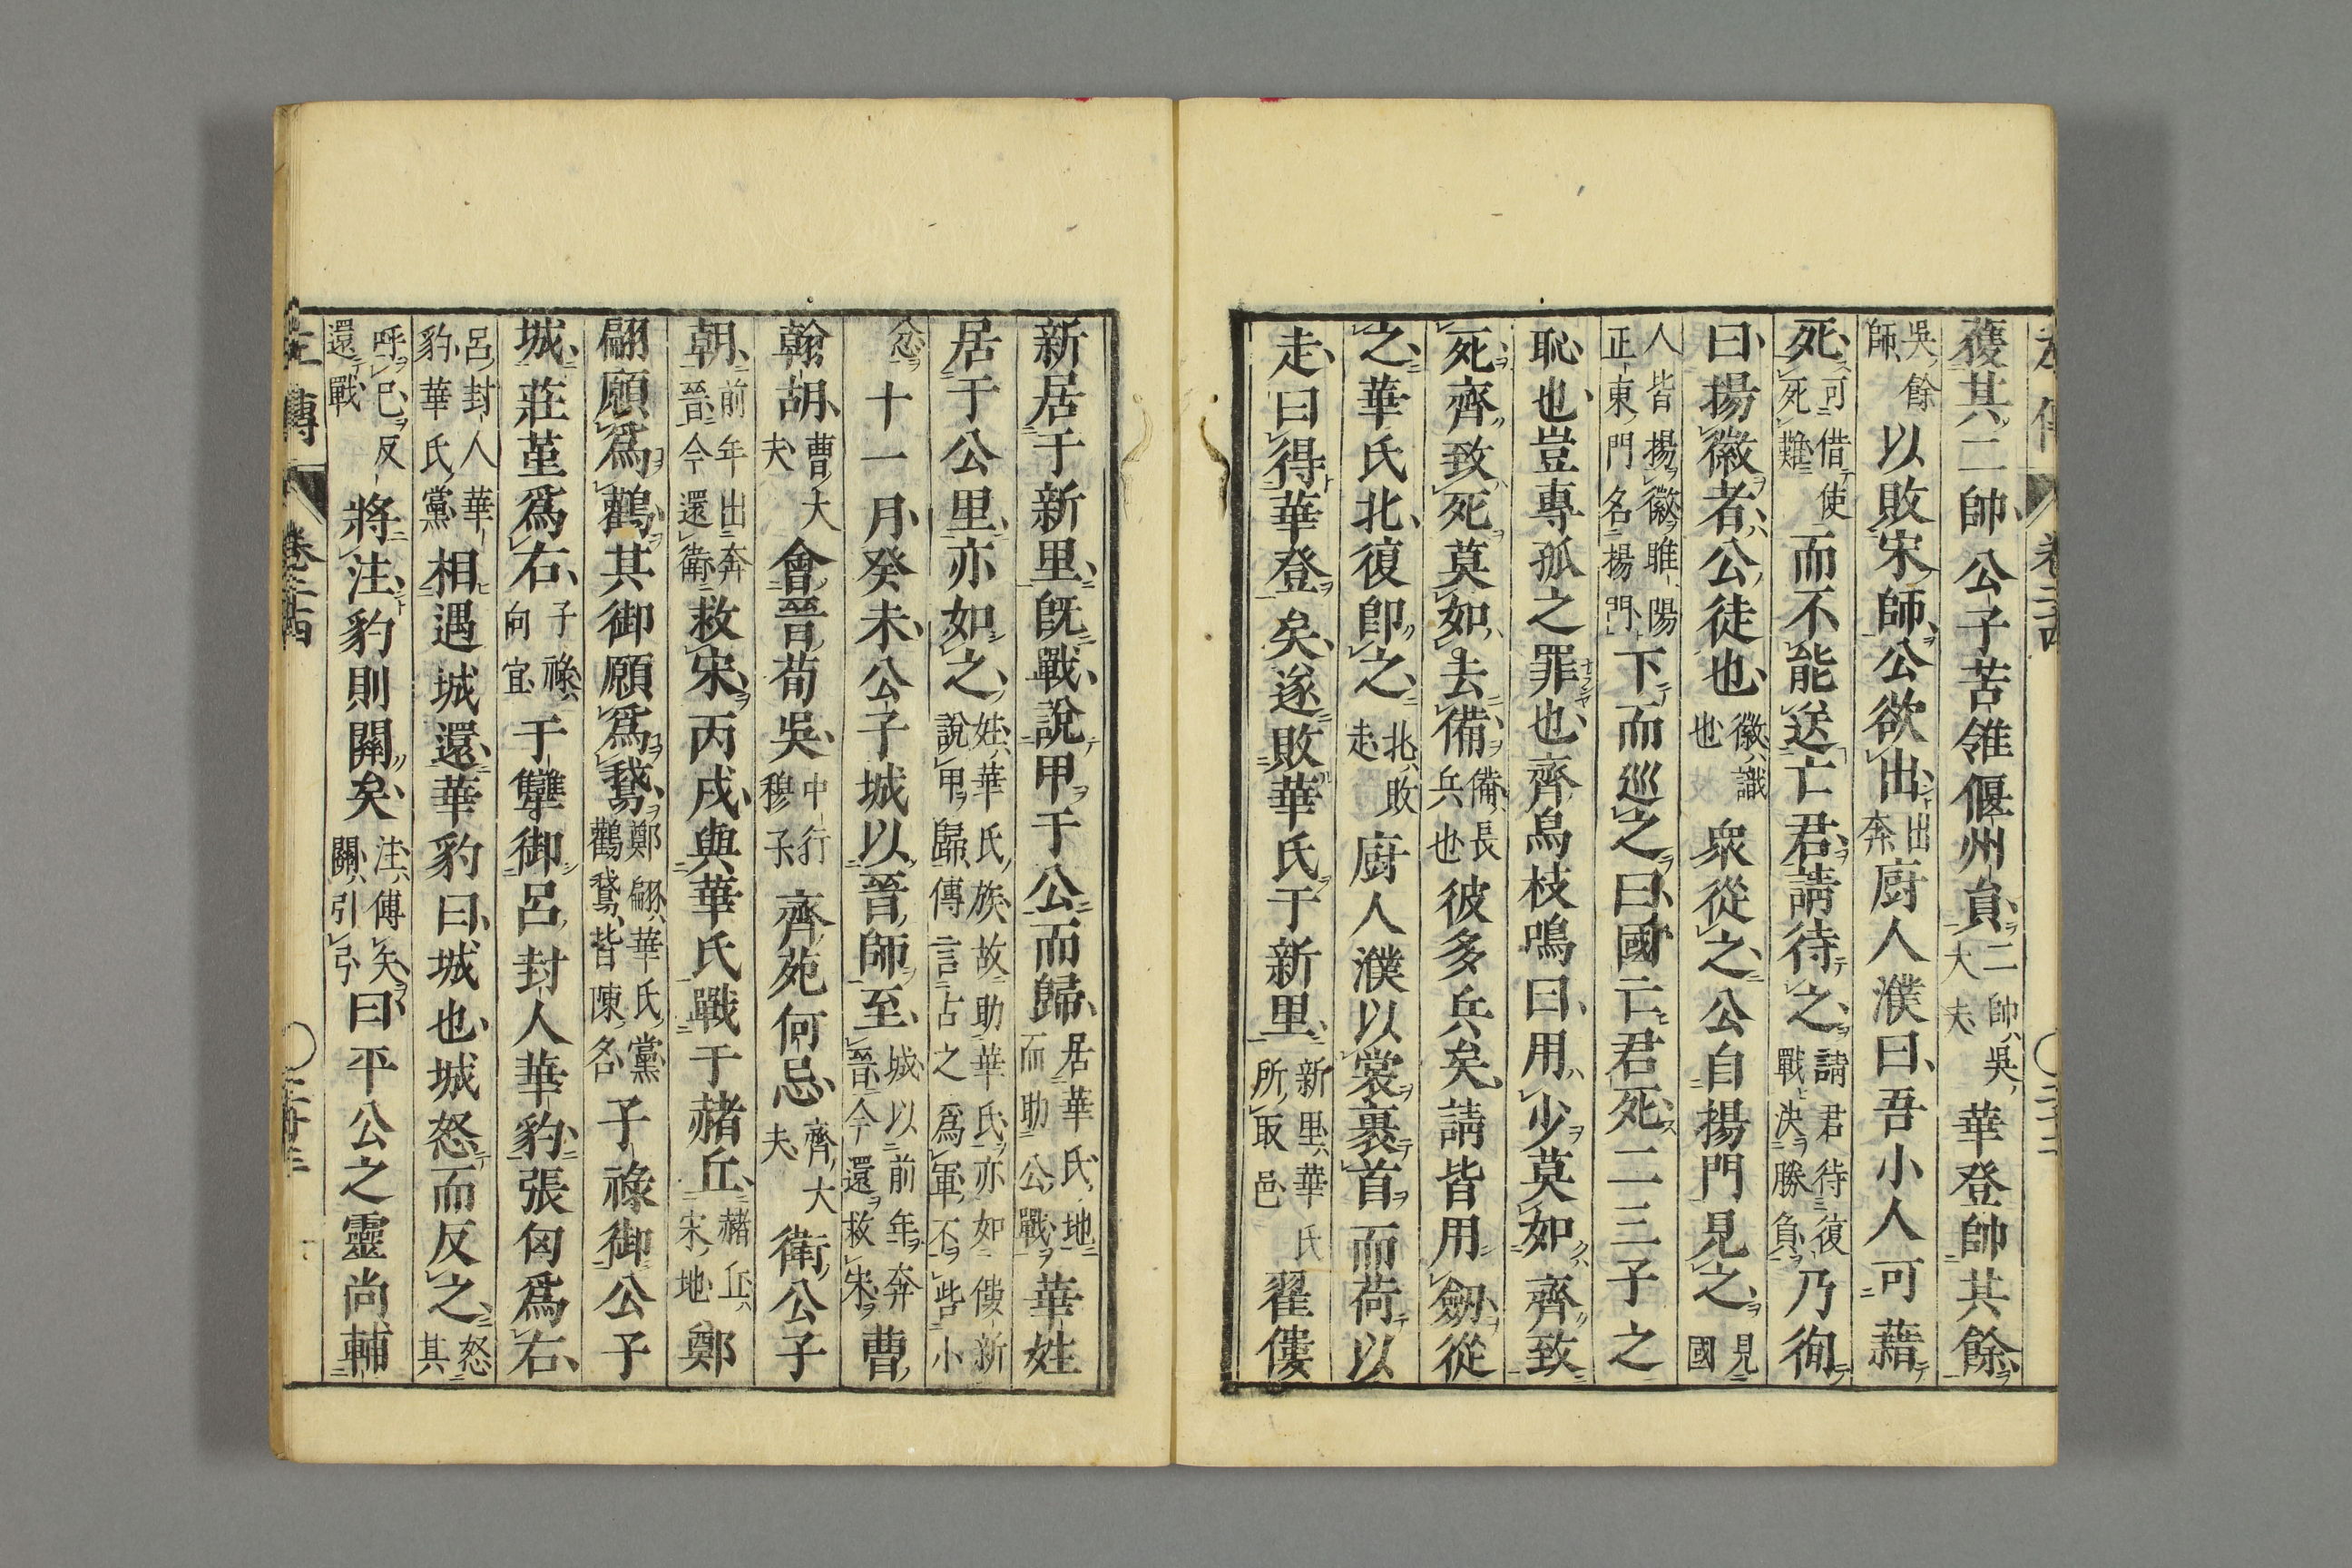 獲其二帥公子苦雂偃州員二帥吳大夫華登帥其餘
吳餘師以敗宋師公欲出出奔廚人濮曰吾小人可藉
死可借使死難而不能送亡君請待之請君待復戰決勝負乃徇
曰揚徽者公徒也徽識也眾從之公自揚門見之見國
人皆揚徽睢陽正東門名揚門下而巡之曰國亡君死二三子之
恥也豈專孤之罪也齊烏枝鳴曰用少莫如齊致
死齊致死莫如去備備長兵也彼多兵矣請皆用劒從
之華氏北復即之北敗走廚人濮以裳裹首而荷以
走曰得華登矣遂敗華氏于新里新里華氏所取邑翟僂
新居于新里旣戰說甲于公而歸居華氏地而助公戰華姓
居于公里亦如之姓華氏族故助華氏亦如僂新說甲歸傳言古之爲軍不呰小
忿十一月癸未公子城以晉師至城以前年奔晉今還救宋曹
翰胡曹大夫會晉荀吳中行穆子齊苑何忌齊大夫衛公子
朝前年出奔晉今還衛救宋丙戌與華氏戰于赭丘赭丘宋地鄭
翩願爲鸛其御願爲鵞鄭翩華氏黨鸛鵞皆陳名子祿御公子
城莊堇爲右子祿向宜于犨御呂封人華豹張匄爲右
呂封人華豹華氏黨相遇城還華豹曰城也城怒而反之怒其
呼巳反還戰將注豹則關矣注傅矢關引弓曰平公之靈尚輔
左傳 卷二十四